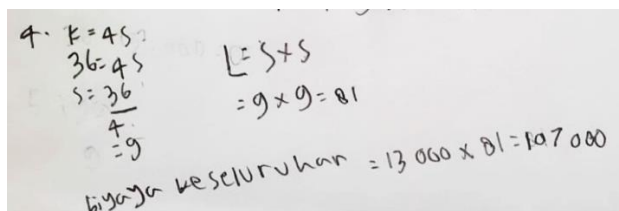 4. K = 4S
36 = 4S
S = 36
4
= 9
L = S x S
= 9 x 9 = 81
biyaya keseluruhan = 13 000 x 81 = 107 000